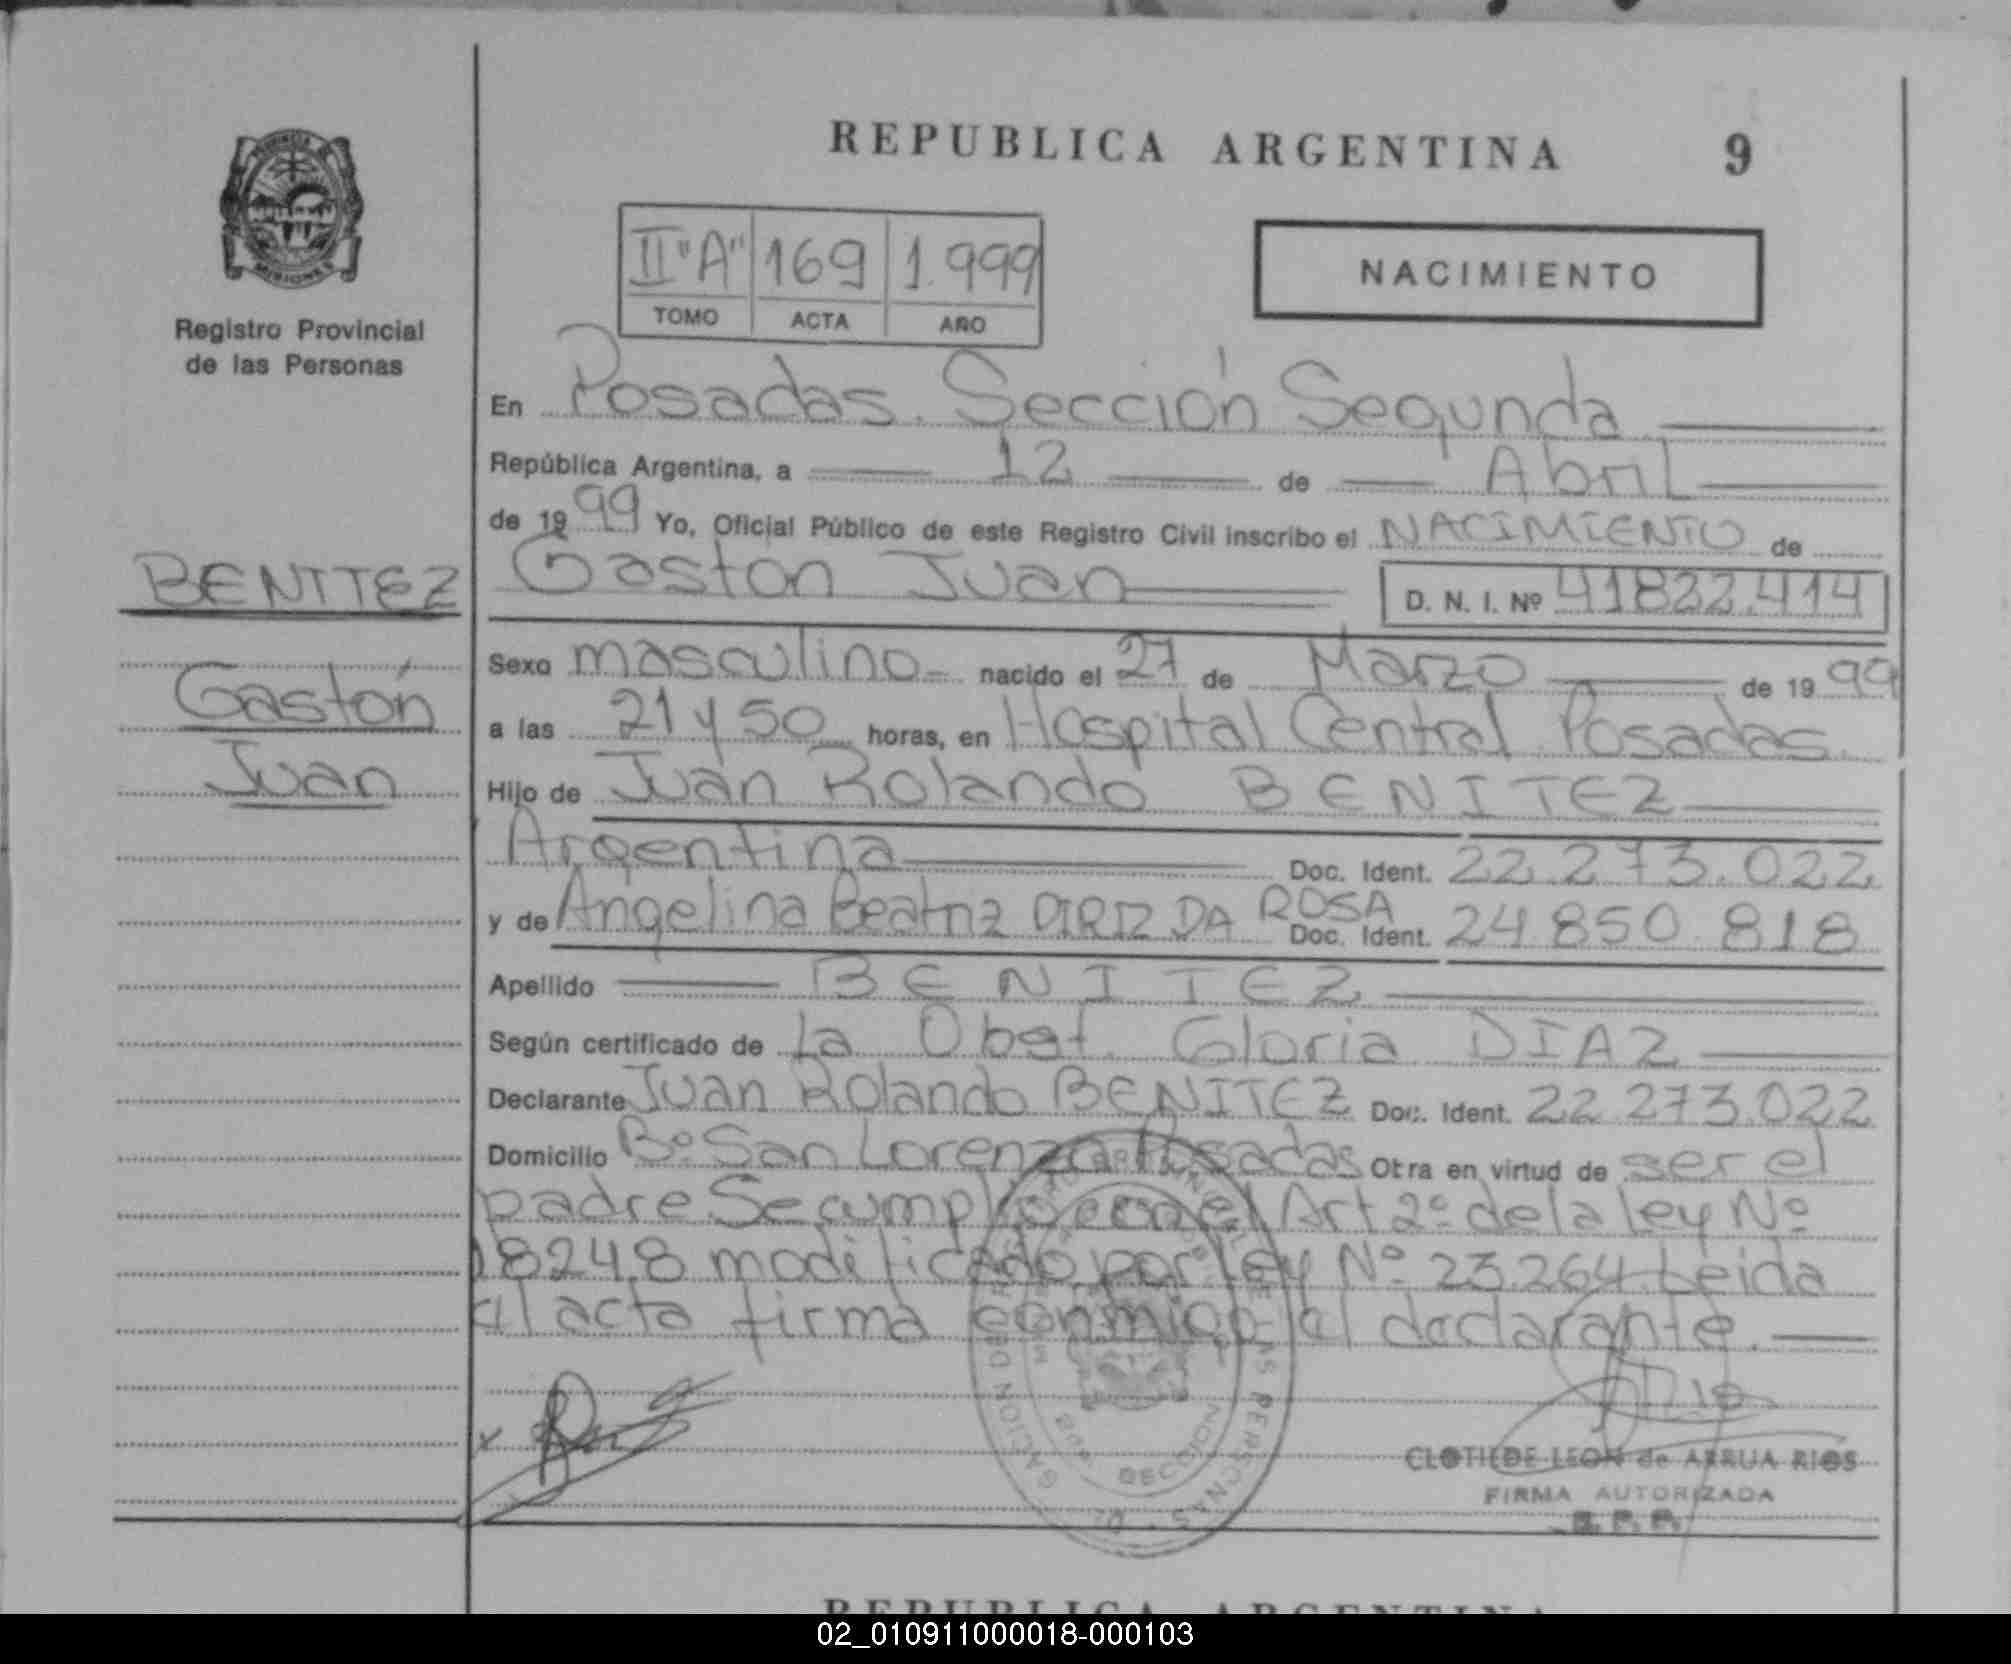 REPUBLICA ARGENTINA 9
PROVINCIA DE
MISIONES
Registro Provincial
de las Personas
II "A" 169 1.999
TOMO ACTA AÑO
NACIMIENTO
En Posadas. Sección Segunda
República Argentina, a 12 de Abril
de 1999 Yo, Oficial Público de este Registro Civil inscribo el NACIMIENTO de
BENITEZ
Gastón Juan D. N. I. Nº 41822.414
Sexo masculino nacido el 27 de Marzo de 1999
Gastón
a las 21 y 50 horas, en Hospital Central Posadas.
Juan
Hijo de Juan Rolando BENITEZ
Argentina Doc. Ident. 22.273.022
y de Angelina Beatriz DIRIZ DA ROSA Doc. Ident. 24.850.818
Apellido BENITEZ
Según certificado de la Obst. Gloria DIAZ
Declarante Juan Rolando BENITEZ Doc. Ident. 22.273.022
Domicilio Bº San Lorenzo Posadas Otra en virtud de ser el
padre. Se cumple con el Art 2º de la ley Nº
18248 modificado por ley Nº 23.264. Leida
el acta firma conmigo el declarante.
x
CLOTILDE LEON de ARRUA RIOS
FIRMA AUTORIZADA
R. P. P.
REPUBLICA ARGENTINA
02_010911000018-000103